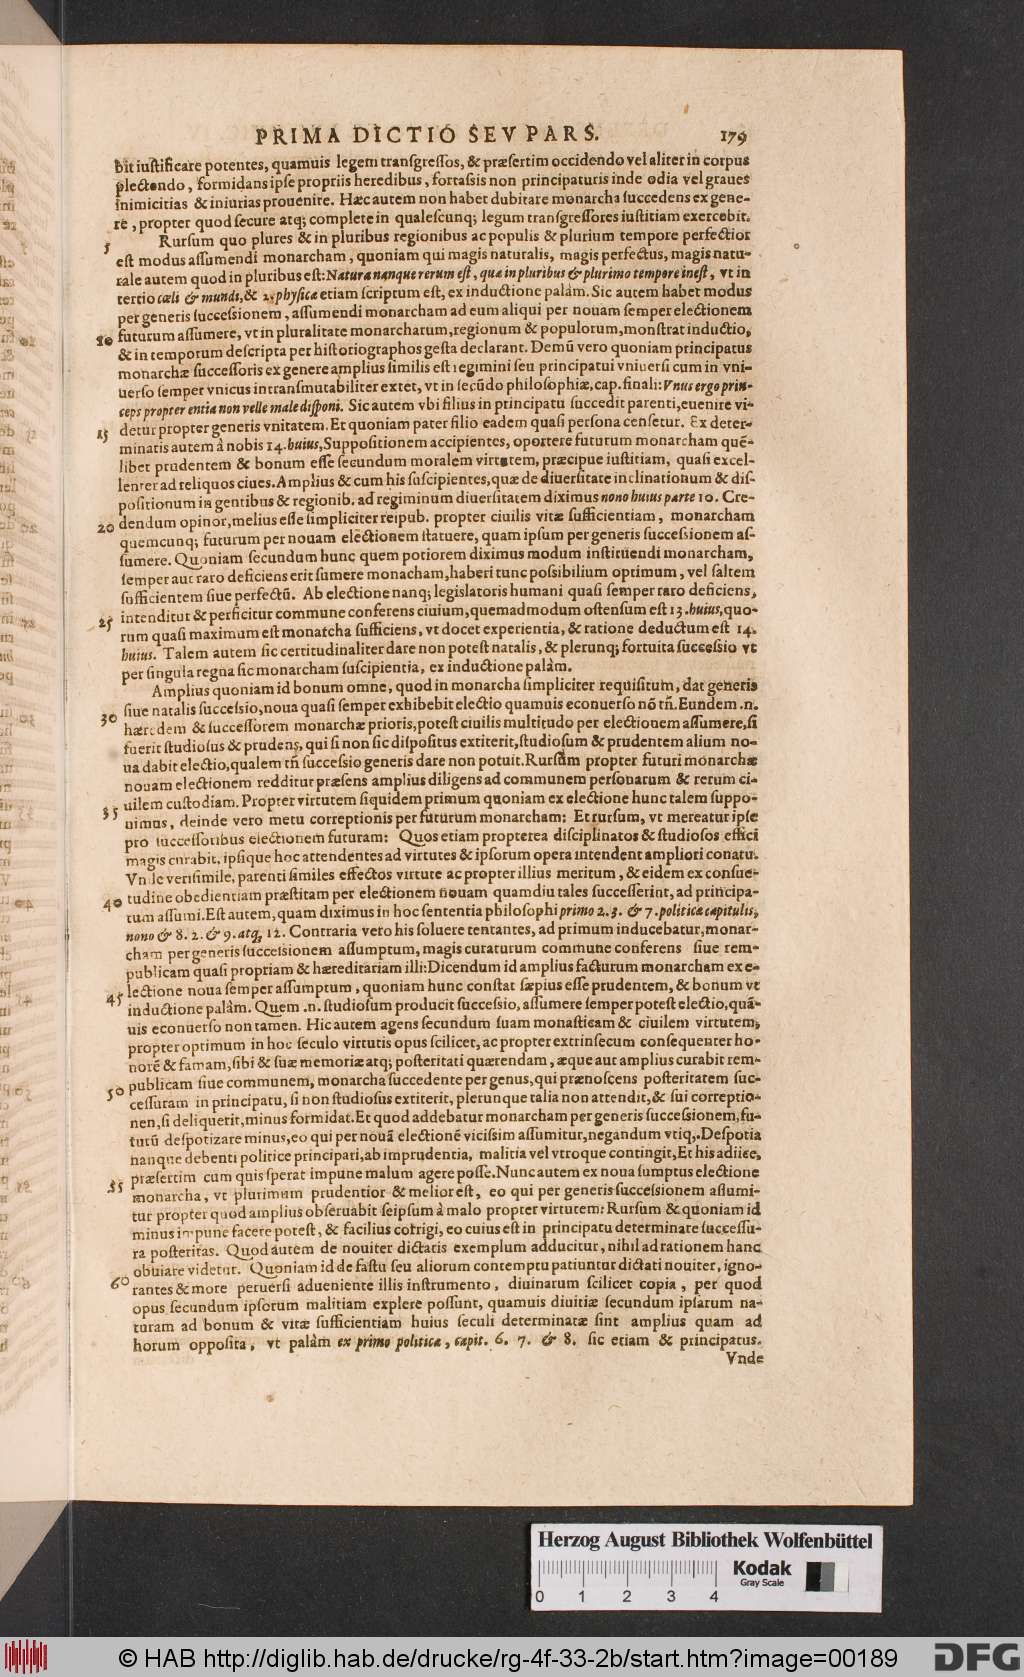 PRIMA DICTIO SEV PARS. 179
bit iuſtificare potentes, quamuis legem tranſgreſſos, & præſertim occidendo vel aliter in corpus
plectendo, formidans ipſe propriis heredibus, fortaſsis non principaturis inde odia vel graues
inimicitias & iniurias prouenire. Hæc autem non habet dubitare monarcha ſuccedens ex gene-
re, propter quod ſecure atq; complete in qualeſcunq; legum tranſgreſſores iuſtitiam exercebit.
5 Rurſum quo plures & in pluribus regionibus ac populis & plurium tempore perfectior
eſt modus aſſumendi monarcham, quoniam qui magis naturalis, magis perfectus, magis natu-
rale autem quod in pluribus eſt: Natura nanque rerum eſt, quæ in pluribus & plurimo tempore ineſt, vt in
tertio cæli & mundi, & 2. phyſicæ etiam ſcriptum eſt, ex inductione palàm. Sic autem habet modus
per generis ſucceſsionem, aſſumendi monarcham ad eum aliqui per nouam ſemper electionem
10 futurum aſſumere, vt in pluralitate monarcharum, regionum & populorum, monſtrat inductio,
& in temporum deſcripta per hiſtoriographos geſta declarant. Demū vero quoniam principatus
monarchæ ſucceſſoris ex genere amplius ſimilis eſt regimini ſeu principatui vniuerſi cum in vni-
uerſo ſemper vnicus intranſmutabiliter extet, vt in ſecūdo philoſophiæ, cap. finali: Vnus ergo prin-
ceps propter entia non velle male diſponi. Sic autem vbi filius in principatu ſuccedit parenti, euenire vi-
15 detur propter generis vnitatem. Et quoniam pater filio eadem quaſi perſona cenſetur. Ex deter-
minatis autem à nobis 14. huius, Suppoſitionem accipientes, oportere futurum monarcham quē-
libet prudentem & bonum eſſe ſecundum moralem virtutem, præcipue iuſtitiam, quaſi excel-
lenter ad reliquos ciues. Amplius & cum his ſuſcipientes, quæ de diuerſitate inclinationum & diſ-
poſitionum in gentibus & regionib. ad regiminum diuerſitatem diximus nono huius parte 10. Cre-
20 dendum opinor, melius eſſe ſimpliciter reipub. propter ciuilis vitæ ſufficientiam, monarcham
quemcunq; futurum per nouam electionem ſtatuere, quam ipſum per generis ſucceſsionem aſ-
ſumere. Quoniam ſecundum hunc quem potiorem diximus modum inſtituendi monarcham,
ſemper aut raro deficiens erit ſumere monacham, haberi tunc poſsibilium optimum, vel ſaltem
ſufficientem ſiue perfectū. Ab electione nanq; legislatoris humani quaſi ſemper raro deficiens,
25 intenditur & perficitur commune conferens ciuium, quemadmodum oſtenſum eſt 13. huius, quo-
rum quaſi maximum eſt monarcha ſufficiens, vt docet experientia, & ratione deductum eſt 14.
huius. Talem autem ſic certitudinaliter dare non poteſt natalis, & plerunq; fortuita ſucceſsio vt
per ſingula regna ſic monarcham ſuſcipientia, ex inductione palàm.
Amplius quoniam id bonum omne, quod in monarcha ſimpliciter requiſitum, dat generis
30 ſiue natalis ſucceſsio, noua quaſi ſemper exhibebit electio quamuis econuerſo nō tñ. Eundem .n.
hæredem & ſucceſſorem monarchæ prioris, poteſt ciuilis multitudo per electionem aſſumere, ſi
fuerit ſtudioſus & prudens, qui ſi non ſic diſpoſitus extiterit, ſtudioſum & prudentem alium no-
ua dabit electio, qualem tñ ſucceſsio generis dare non potuit. Rurſum propter futuri monarchæ
nouam electionem redditur præſens amplius diligens ad communem perſonarum & rerum ci-
35 uilem cuſtodiam. Propter virtutem ſiquidem primum quoniam ex electione hunc talem ſuppo-
uimus, deinde vero metu correptionis per futurum monarcham: Et rurſum, vt mereatur ipſe
pro ſucceſſoribus electionem futuram: Quos etiam propterea diſciplinatos & ſtudioſos effici
magis curabit, ipſique hoc attendentes ad virtutes & ipſorum opera intendent ampliori conatu.
Vnde veriſimile, parenti ſimiles effectos virtute ac propter illius meritum, & eidem ex conſue-
40 tudine obedientiam præſtitam per electionem nouam quamdiu tales ſucceſſerint, ad principa-
tum aſſumi. Eſt autem, quam diximus in hoc ſententia philoſophi primo 2. 3. & 7. politicæ capitulis,
nono & 8. 2. & 9. atq; 12. Contraria vero his ſoluere tentantes, ad primum inducebatur, monar-
cham per generis ſucceſsionem aſſumptum, magis curaturum commune conferens ſiue rem-
publicam quaſi propriam & hæreditariam illi: Dicendum id amplius facturum monarcham ex e-
45 lectione noua ſemper aſſumptum, quoniam hunc conſtat ſæpius eſſe prudentem, & bonum vt
inductione palàm. Quem .n. ſtudioſum producit ſucceſsio, aſſumere ſemper poteſt electio, quā-
uis econuerſo non tamen. Hic autem agens ſecundum ſuam monaſticam & ciuilem virtutem,
propter optimum in hoc ſeculo virtutis opus ſcilicet, ac propter extrinſecum conſequenter ho-
norē & famam, ſibi & ſuæ memoriæ atq; poſteritati quærendam, æque aut amplius curabit rem-
50 publicam ſiue communem, monarcha ſuccedente per genus, qui prænoſcens poſteritatem ſuc-
ceſſuram in principatu, ſi non ſtudioſus extiterit, plerunque talia non attendit, & ſui correptio-
nen, ſi deliquerit, minus formidat. Et quod addebatur monarcham per generis ſucceſsionem, fu-
turū deſpotizare minus, eo qui per nouā electionē viciſsim aſſumitur, negandum vtiq;. Deſpotia
nanque debenti politice principari, ab imprudentia, malitia vel vtroque contingit, Et his adiice,
55 præſertim cum quis ſperat impune malum agere poſſe. Nunc autem ex noua ſumptus electione
monarcha, vt plurimum prudentior & melior eſt, eo qui per generis ſucceſsionem aſſumi-
tur propter quod amplius obſeruabit ſeipſum à malo propter virtutem: Rurſum & quoniam id
minus impune facere poteſt, & facilius corrigi, eo cuius eſt in principatu determinate ſucceſſu-
ra poſteritas. Quod autem de nouiter dictatis exemplum adducitur, nihil ad rationem hanc
obuiare videtur. Quoniam id de faſtu ſeu aliorum contemptu patiuntur dictati nouiter, igno-
60 rantes & more peruerſi adueniente illis inſtrumento, diuinarum ſcilicet copia, per quod
opus ſecundum ipſorum malitiam explere poſſunt, quamuis diuitiæ ſecundum ipſarum na-
turam ad bonum & vitæ ſufficientiam huius ſeculi determinatæ ſint amplius quam ad
horum oppoſita, vt palàm ex primo politicæ, capit. 6. 7. & 8. ſic etiam & principatus.
Vnde
Herzog August Bibliothek Wolfenbüttel
Kodak
Gray Scale
0 1 2 3 4
© HAB http://diglib.hab.de/drucke/rg-4f-33-2b/start.htm?image=00189
DFG